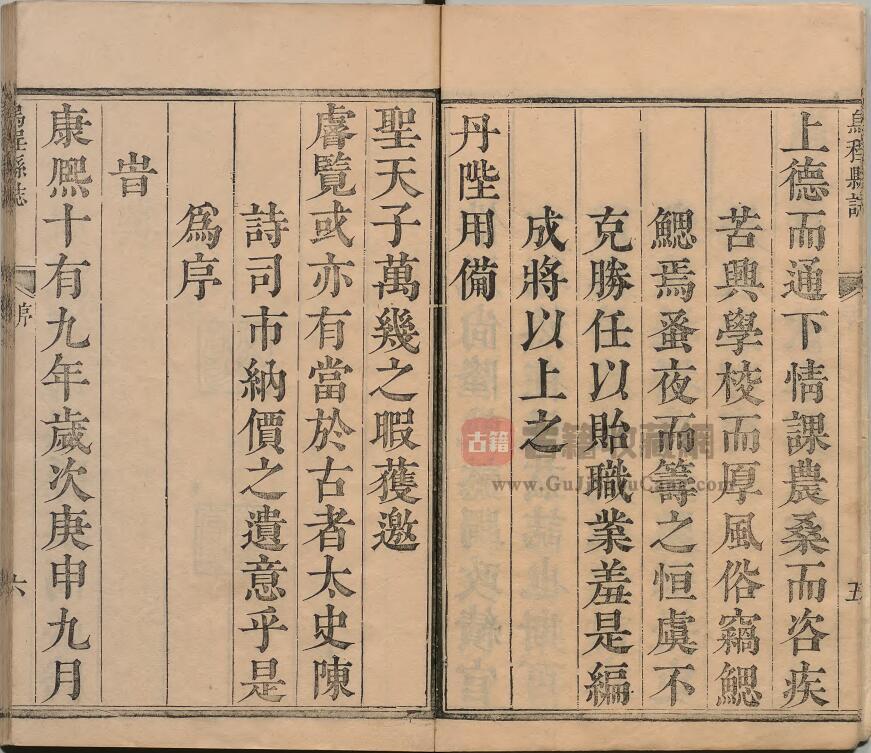 烏程縣誌
五
上德而通下情課農桑而咨疾
苦興學校而厚風俗竊鰓
鰓焉蚤夜而籌之恒虞不
克勝任以貽職業羞是編
成將以上之
丹陛用備
聖天子萬幾之暇蒦邀
睿覽或亦有當於古者太史陳
詩司市納價之遺意乎是
為序
旹
康熙十有九年歲次庚申九月
烏程縣誌
序
六
古籍
古籍收藏網
www.GuJiShuCang.com